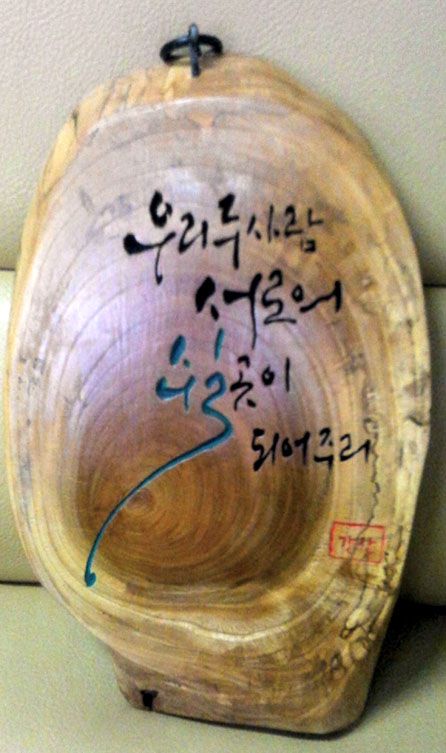 우리 두 사람
서로의
쉴 곳이
되어주리